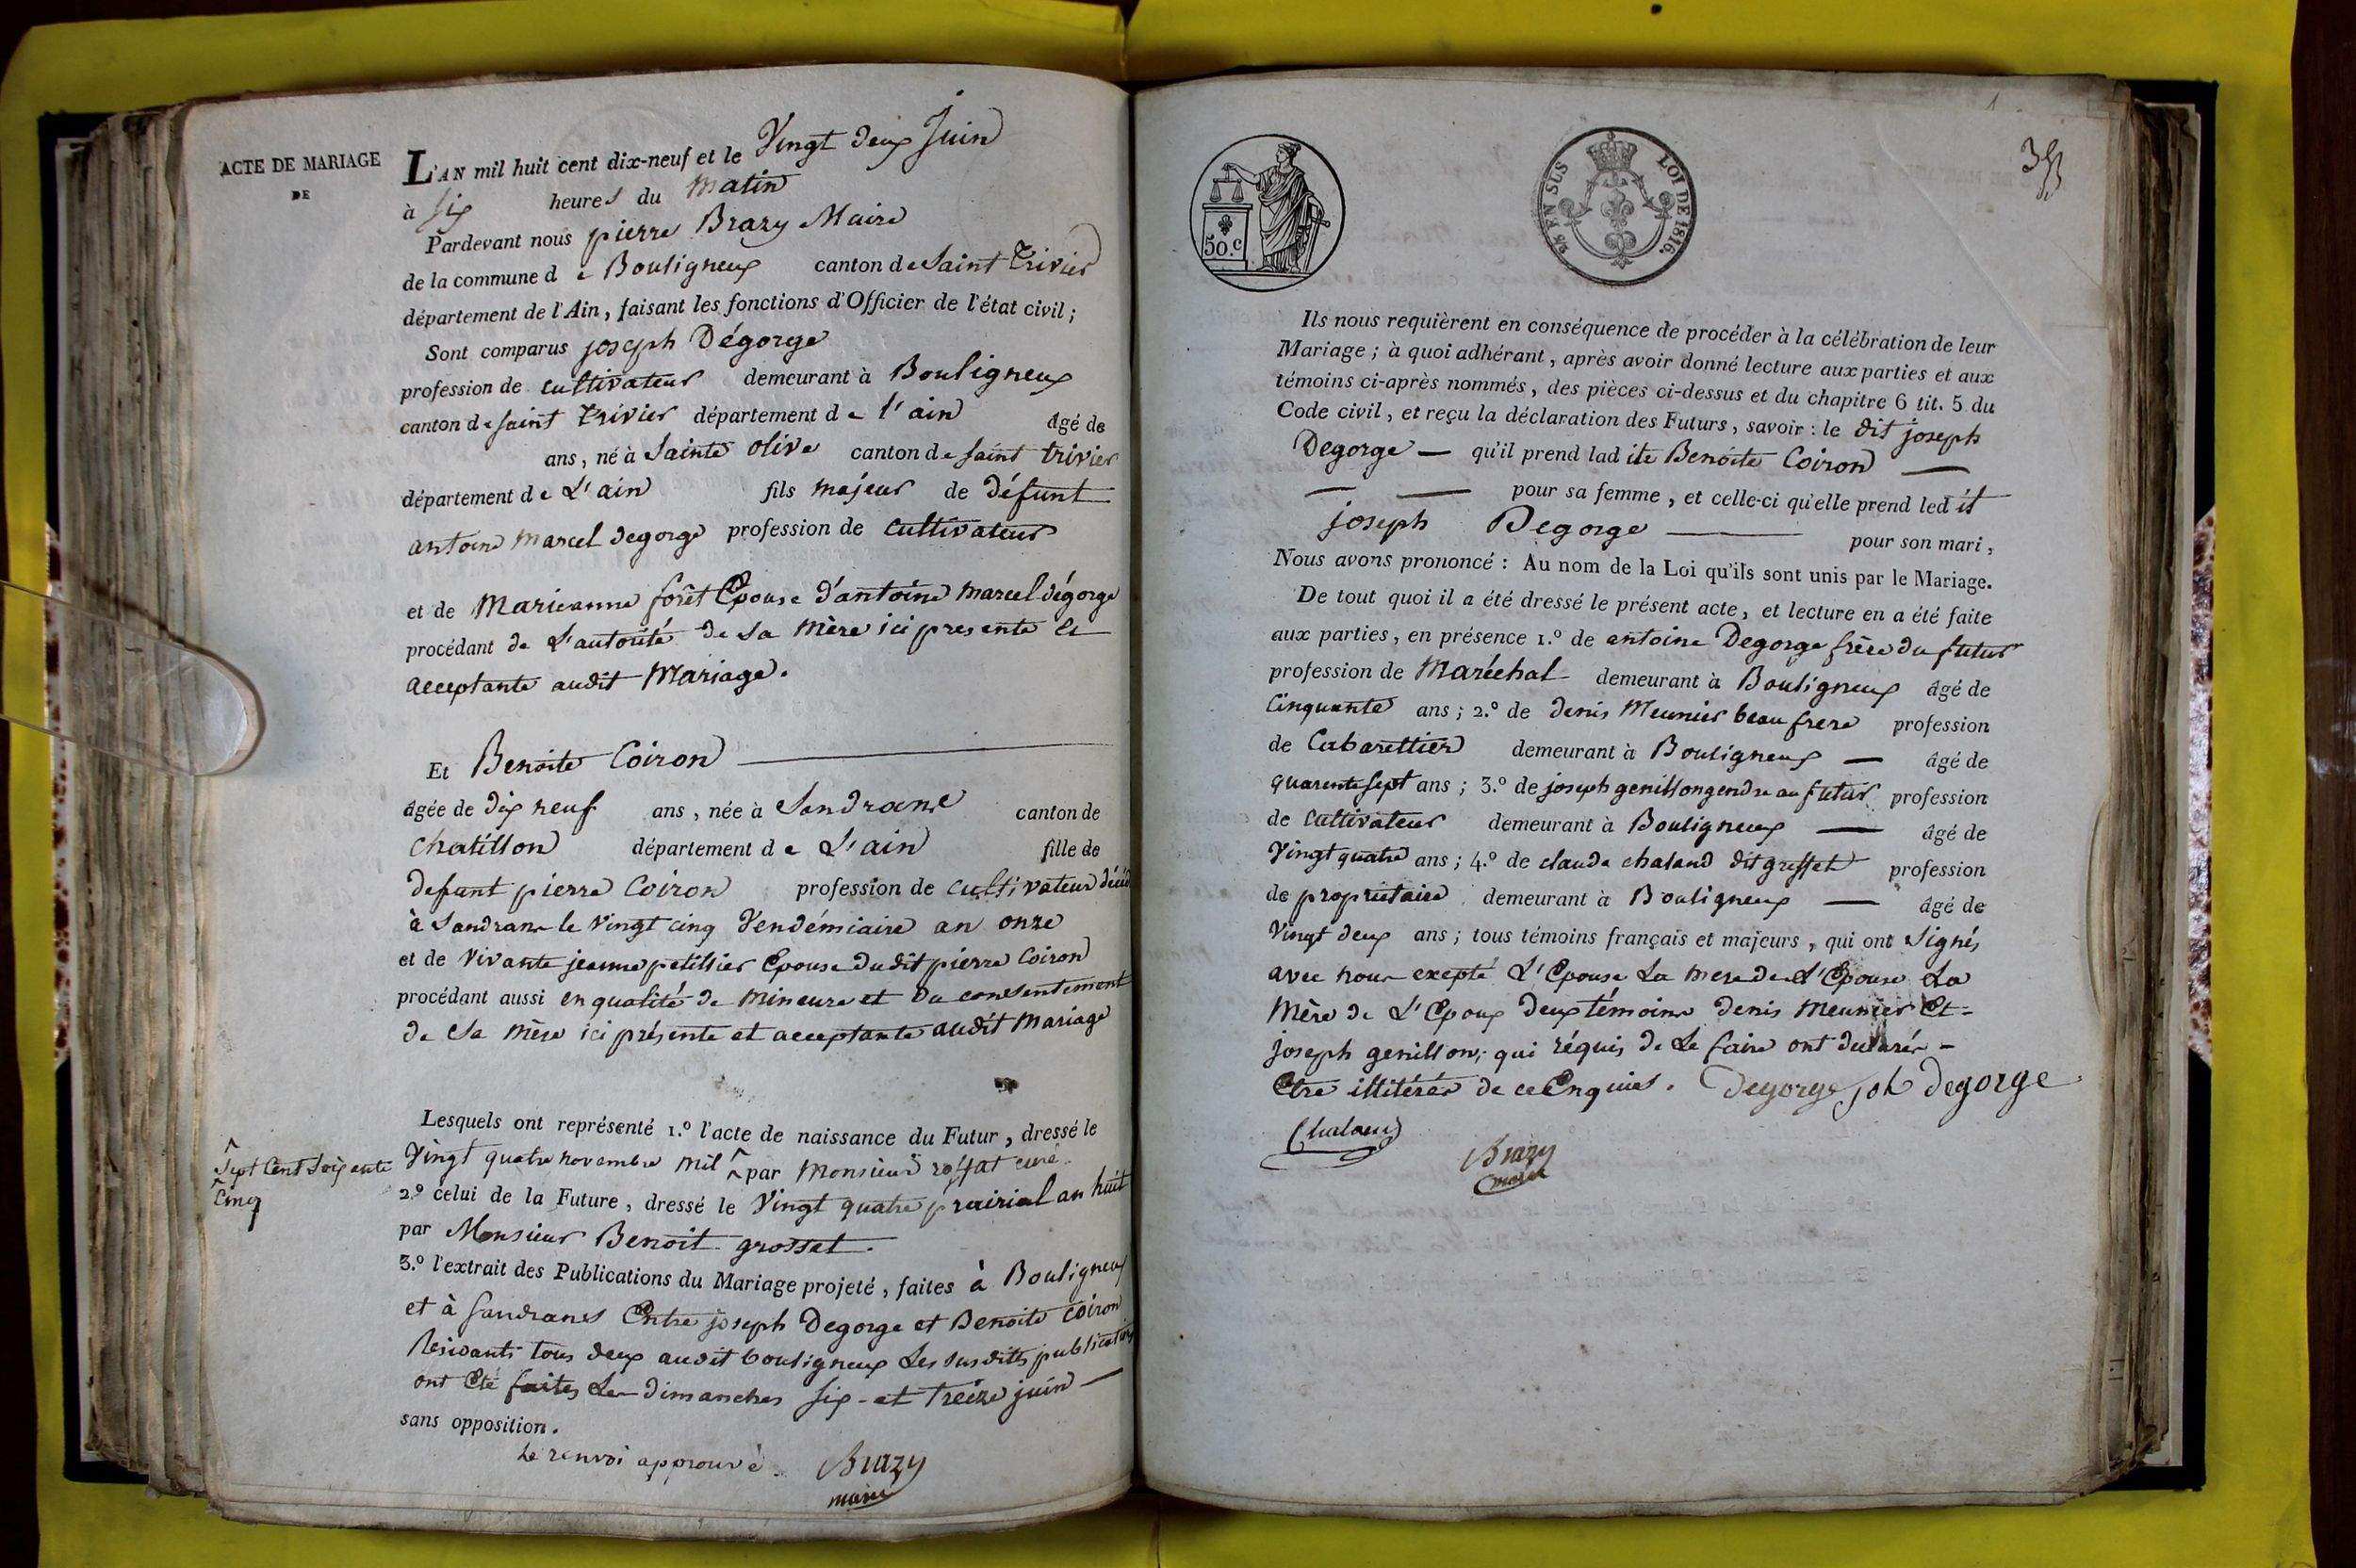 ACTE DE MARIAGE
DE
L'AN mil huit cent dix-neuf et le Vingt deux Juin
à six heures du matin
Pardevant nous pierre Brazy Maire
de la commune de Bouligneux canton de Saint Trivier
département de l'Ain, faisant les fonctions d'Officier de l'état civil ;
Sont comparus joseph Dégorge
profession de cultivateur demeurant à Bouligneux
canton de saint trivier département de l'ain âgé de
ans, né à Sainte olive canton de saint trivier
département de L'ain fils majeur de défunt
antoine marcel degorge profession de cultivateur
et de Marieanne forêt Epouse d'antoine marcel dégorge
procédant de L'autorité de sa mère ici presente et
acceptante audit mariage.
Et Benoite Coiron
âgée de dix neuf ans, née à Sandrane canton de
chatillon département de L'ain fille de
defunt pierre Coiron profession de cultivateur décéd
à Sandrans le vingt cinq Vendémiaire an onze
et de vivante jeanne petillier Epouse dudit pierre Coiron
procédant aussi en qualité de mineure et du consentement
de sa mère ici présente et acceptante audit mariage
Lesquels ont représenté 1.º l'acte de naissance du Futur, dressé le
Vingt quatre novembre mil ^ par monsieur roffat curé
^ Sept Cent Soixante
^ Cinq
2.º celui de la Future, dressé le Vingt quatre prairial an huit
par Monsieur Benoit grosset.
3.º l'extrait des Publications du Mariage projeté, faites à Bouligneux
et à sandrans Entre joseph Degorge et Benoite Coiron
Residants tous deux audit bouligneux Les susdites publications
ont Eté faites Les dimanches six et treize juin
sans opposition.
Le renvoi approuvé. Brazy
maire
1
35
50.c
25 EN SUS LOI DE 1816.
Ils nous requièrent en conséquence de procéder à la célébration de leur
Mariage ; à quoi adhérant, après avoir donné lecture aux parties et aux
témoins ci-après nommés, des pièces ci-dessus et du chapitre 6 tit. 5 du
Code civil, et reçu la déclaration des Futurs, savoir : le dit joseph
Degorge — qu'il prend ladite Benoite Coiron —
— — pour sa femme, et celle-ci qu'elle prend ledit
joseph Degorge — pour son mari,
Nous avons prononcé : Au nom de la Loi qu'ils sont unis par le Mariage.
De tout quoi il a été dressé le présent acte, et lecture en a été faite
aux parties, en présence 1.º de antoine Degorge frère du futur
profession de Maréchal demeurant à Bouligneux âgé de
Cinquante ans ; 2.º de denis Meunier beau frere profession
de Cabarettier demeurant à Bouligneux — âgé de
quarente sept ans ; 3.º de joseph genillon gendre au futur profession
de Cultivateur demeurant à Bouligneux — âgé de
Vingt quatre ans ; 4.º de claude chaland dit greffet profession
de propriétaire demeurant à Bouligneux — âgé de
Vingt deux ans ; tous témoins français et majeurs, qui ont signés
avec nous exepté L'Epouse La mere de L'Epouse La
mère de L'Epoux deux témoins denis meunier Et
joseph genillon, qui réquis de Le faire ont declarés
Etre illitérés de ce Enquies. Degorge jph degorge
Chaland
Brazy
maire